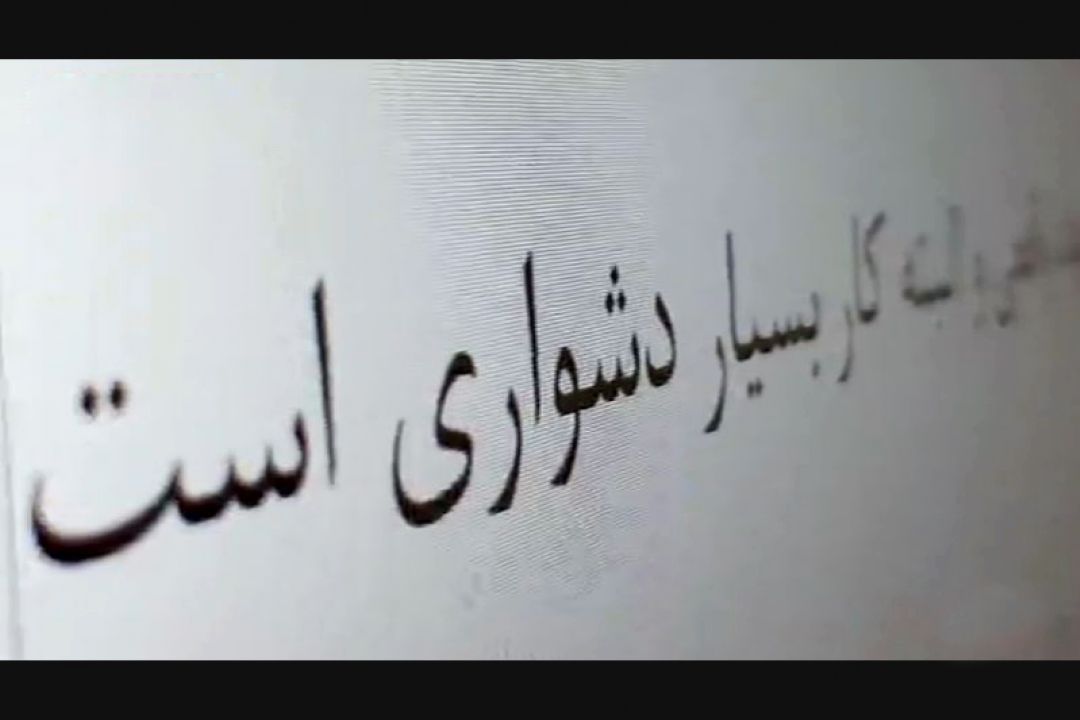 البته کار بسیار دشواری است